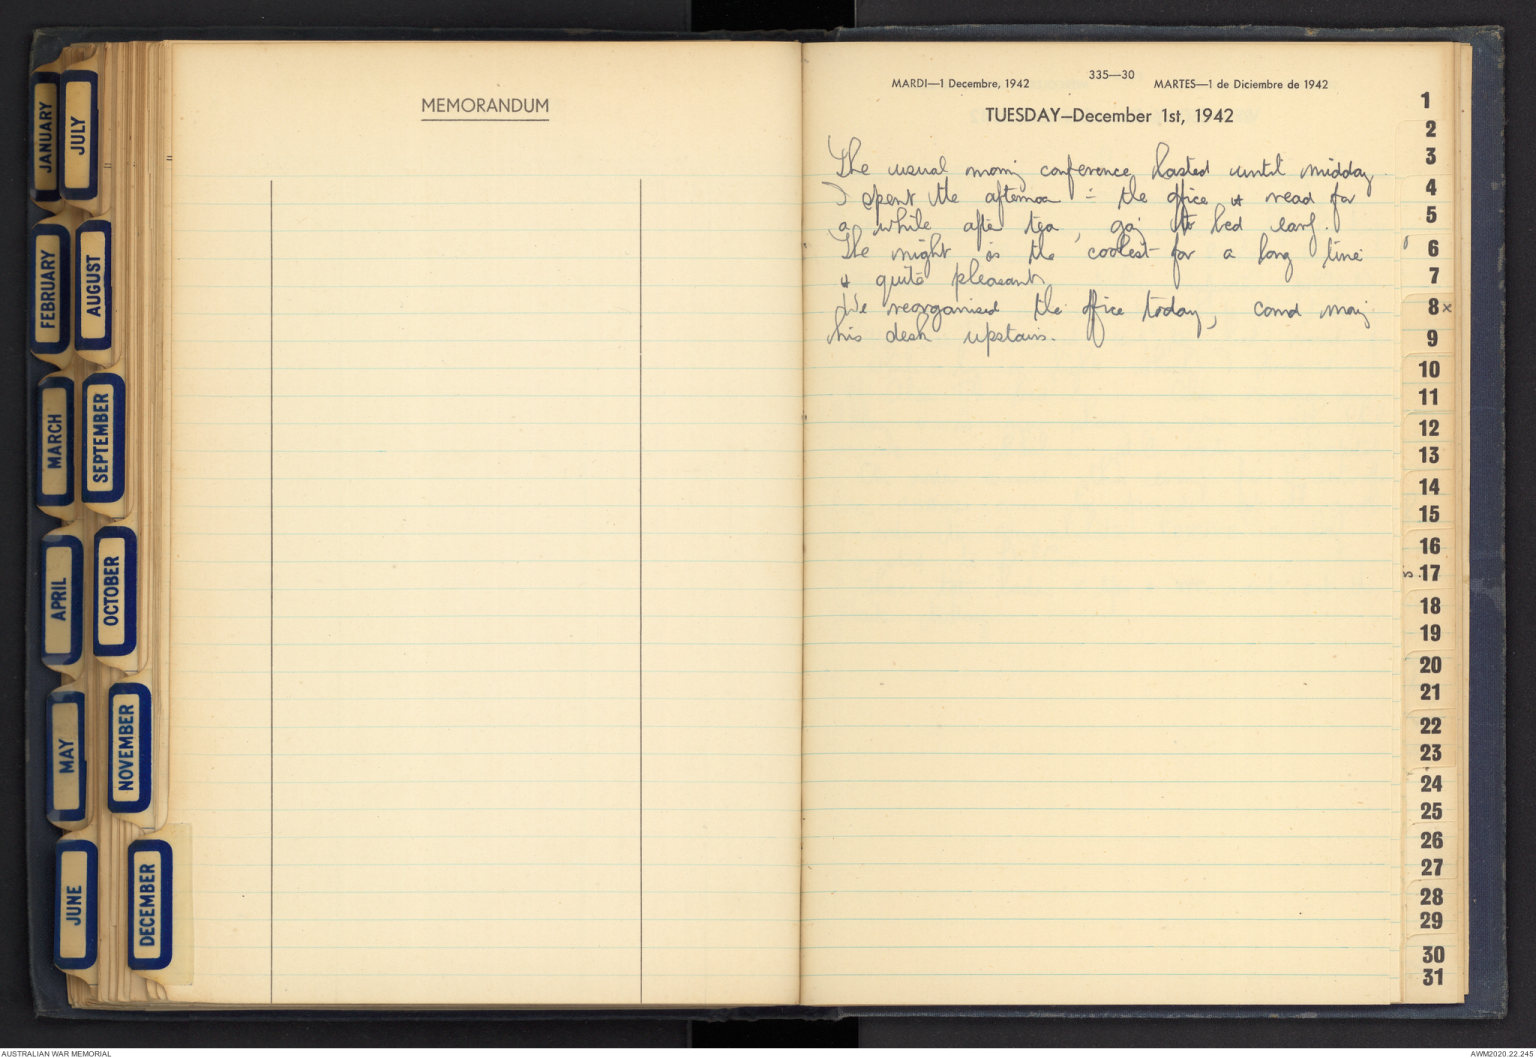 JANUARY
JULY
FEBRUARY
AUGUST
MARCH
SEPTEMBER
APRIL
OCTOBER
MAY
NOVEMBER
JUNE
DECEMBER
MEMORANDUM
335—30
MARDI—1 Decembre, 1942
MARTES—1 de Diciembre de 1942
TUESDAY—December 1st, 1942
The usual morning conference lasted until midday.
I spent the afternoon in the office & read for
a while after tea, going to bed early.
The night is the coolest for a long time
& quite pleasant.
We reorganised the office today, comd moving
his desk upstairs.
1
2
3
4
5
6
7
8 x
9
10
11
12
13
14
15
16
17
18
19
20
21
22
23
24
25
26
27
28
29
30
31
AUSTRALIAN WAR MEMORIAL
AWM2020.22.245